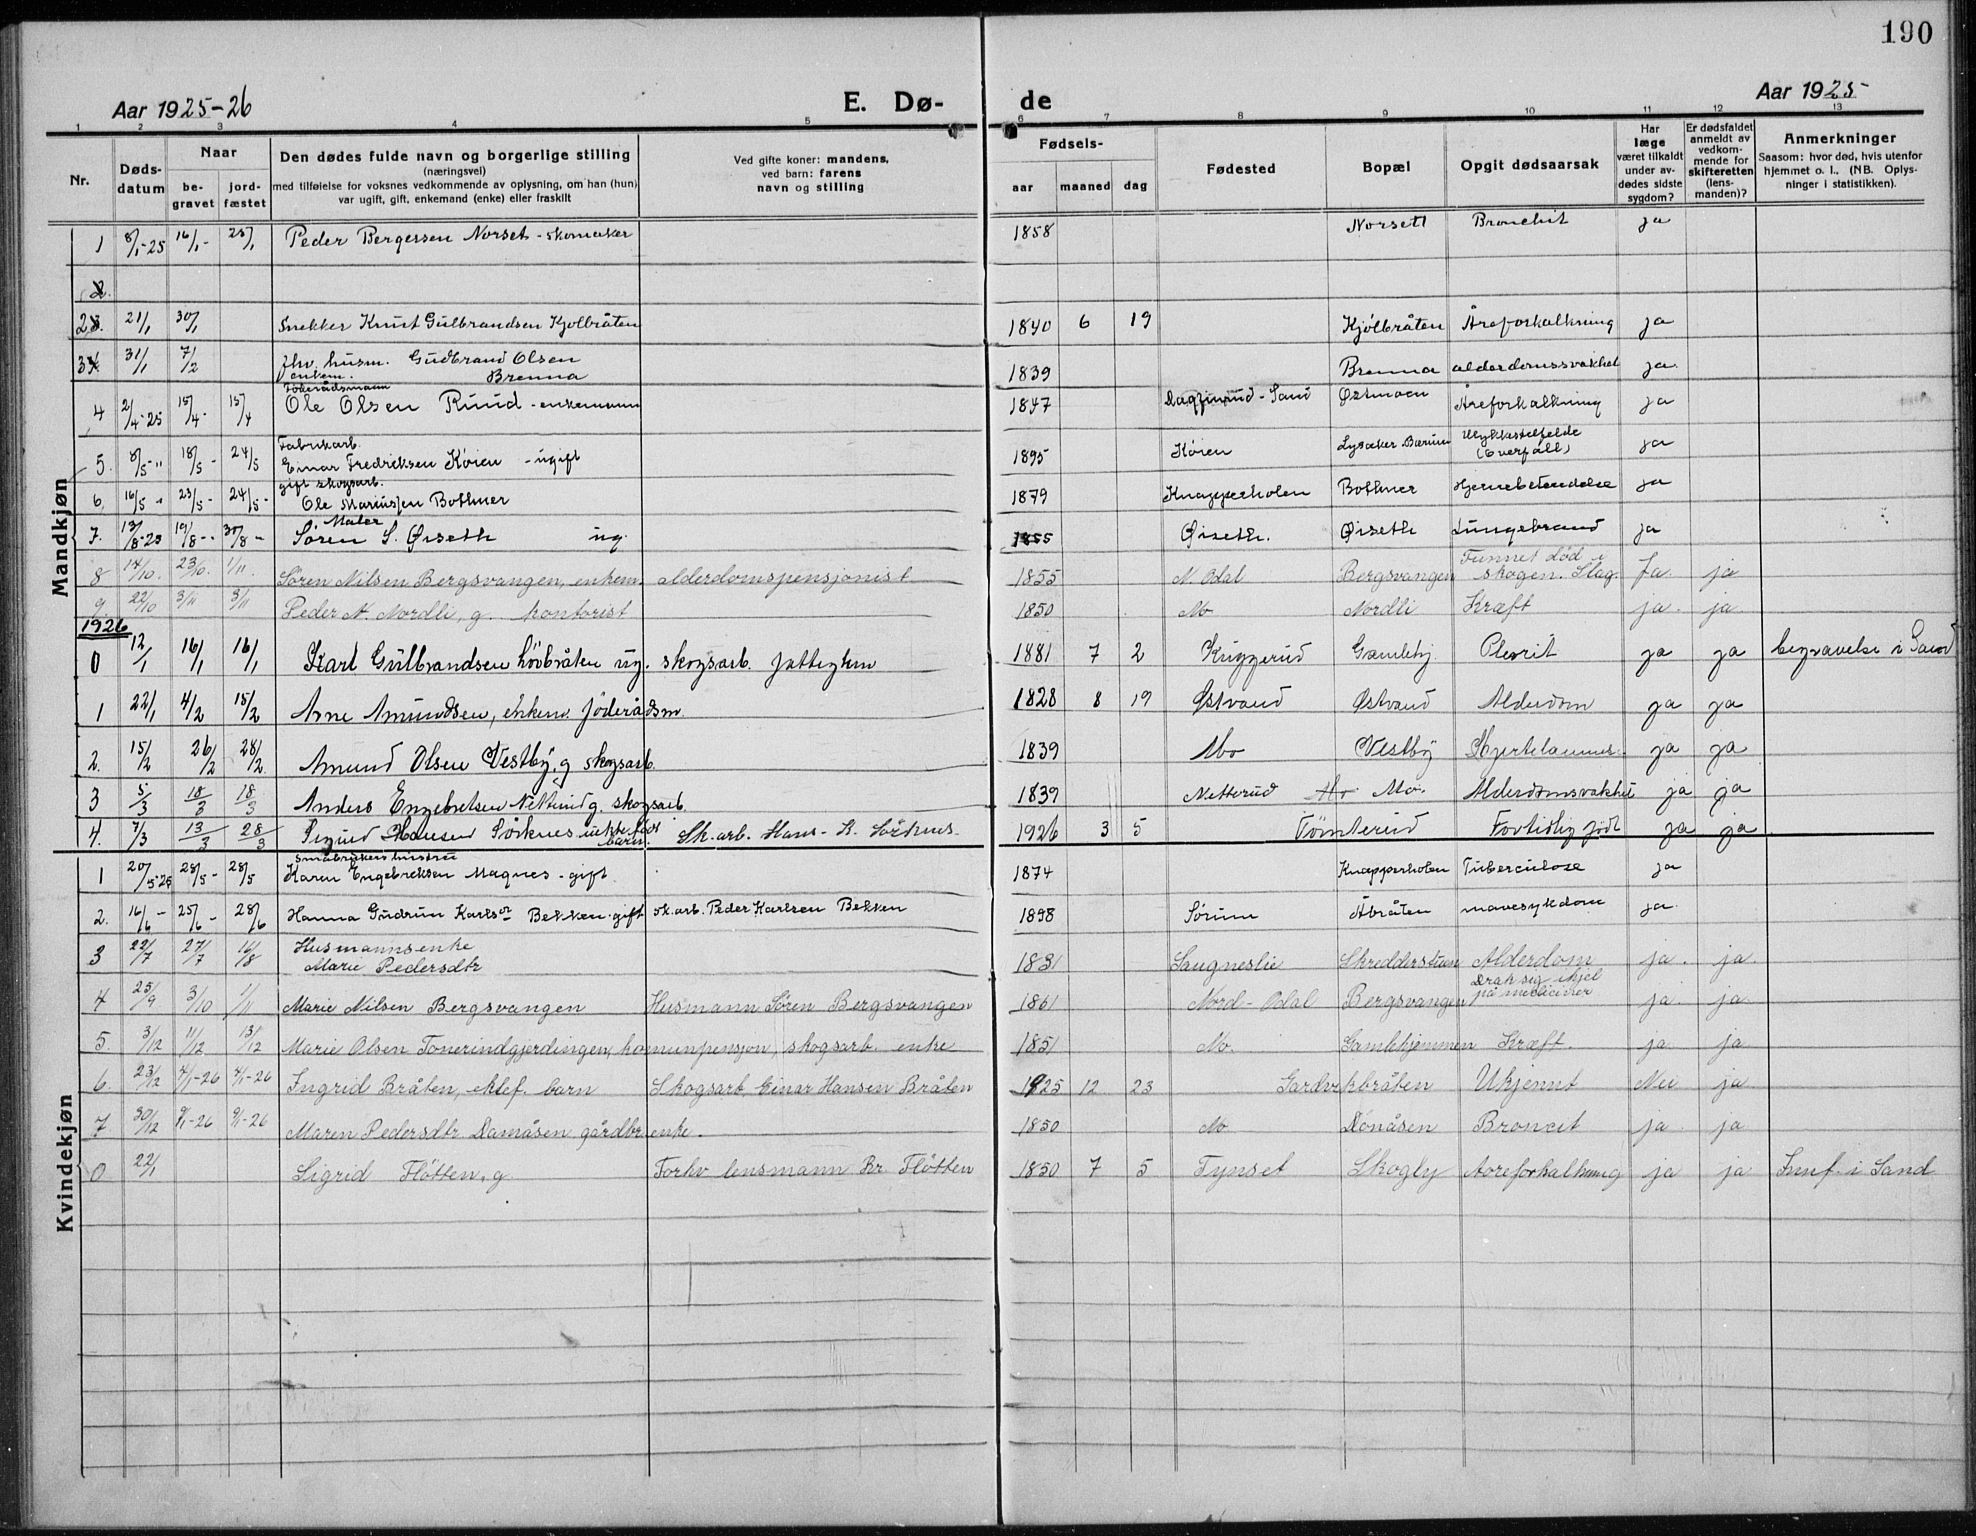 190
Aar 1925-26 E. Dø- de Aar 1925
1 2 3 4 5 6 7 8 9 10 11 12 13
Nr. Døds-datum Naar be-gravet jord-fæstet Den dødes fulde navn og borgerlige stilling (næringsvei) med tilføielse for voksnes vedkommende av oplysning, om han (hun) var ugift, gift, enkemand (enke) eller fraskilt Ved gifte koner: mandens, ved barn: farens navn og stilling Fødsels- aar maaned dag Fødested Bopæl Opgit dødsaarsak Har læge været tilkaldt under av-dødes sidste sygdom? Er dødsfaldet anmeldt av vedkom-mende for skifteretten (lens-manden)? Anmerkninger Saasom: hvor død, hvis utenfor hjemmet o. l., (NB. Oplys-ninger i statistikken).
Mandkjøn
1 8/1-25 16/1- 25/1 Peder Bergersen Norset - skomaker 1858 Norsett Bronchit ja
2
23. 21/1 30/1 Snekker Knut Gulbrandsen Kjølbråten 1840 6 19 Kjølbråten Åreforkalkning ja
34 31/1 7/2 fhv. husm. enkem. Gudbrand Olsen Brenna 1839 Brenna alderdomssvakhet ja.
4 2/4-25 15/4- 15/4 Föderådsmann Ole Olsen Ruud - enkemann 1847 Sand Østmoen Åreforkalkning ja
5. 8/5-" 18/5- 24/5 Fabrikarb. Einar Fredriksen Köien - ugift 1895 Köien Lysaker Bærum Ulykkestilfelde (Overfall) ja
6 16/5-" 23/5- 24/5- gift skogsarb. Ole Mariussen Bottner 1879 Knapperholen Bottner Hjernebetendelse ja
7. 13/8-25 19/8-- 30/8- Maler Søren S. Øiseth ug. 1855 Øiseth. Øiseth Lungebrand ja
8 14/10. 23/10. 1/11. Søren Nilsen Bergsvangen, enkem. alderdomspensjonist 1855 N. Odal Bergsvangen Funnet död i skogen. Slag. Ja. ja
9. 22/10 3/11 3/11 Peder N. Nordli, g. kontorist 1850 Mo Nordli Kræft ja. ja.
1926
0 12/1 16/1 16/1 Karl Gulbrandsen Lövbråten ug. skogsarb. fattiglem 1881 7 2 Kuggerud Gamlehj. Plevrit ja ja begravelse i Sand
1 22/1 4/2 15/2 Arne Amundsen, enkem. föderådsm. 1828 8 19 Østvand Østvand Alderdom ja ja
2. 15/2 26/2 28/2 Amund Olsen Vestby, g skogsarb. 1839 Mo Vestby Hjertelammels. ja ja
3 5/3 18/3 18/3 Anders Engebretsen Netterud g. skogsarb. 1839 Netterud Mo. Alderdomsvakhet ja ja
4. 7/3 13/3 28/3 Sigurd Hansen Sörknes, uekte født barn. Sk.arb. Hans K. Sörknes 1926 3 5 Tömterud Fortidlig født ja ja
Kvindekjøn
1 20/5-25 28/5- 28/5 Småbrukers hustru Karen Engebretsen Magnes - gift. 1874 Knapperholen Tuberculose ja
2. 16/6- 25/6- 28/6 Hanna Gudrun Karlsen Bekken - gift sk.arb. Peder Karlsen Bekken 1898 Sørum Åbråten mavesykdom ja.
3 22/7 27/7 16/8 Husmannsenke Marie Pedersdtr 1831 Saugneslie Skredderstuen Alderdom ja. ja.
4 25/9 3/10 1/11 Marie Nilsen Bergsvangen Husmann Søren Bergsvangen 1861 Nord-Odal Bergsvangen Drak sig ihjel på medicirer ja. ja.
5. 3/12 11/12 13/12 Marie Olsen Tonerindgjerdingen, komunpensjon, skogsarb. enke 1851 Mo. Gamlehjemmen Kræft. ja. ja.
6. 23/12 4/1-26 4/1-26 Ingrid Bråten, ektef. barn Skogsarb. Einar Hansen Bråten 1925 12 23 Gardvikbråten Ukjennt Nei ja
7 30/12 9/1-26 9/1-26 Maren Pedersdtr Damåsen gårdbr. enke. 1850 Mo Dönåsen Broncit ja. ja
0 22/1 Sigrid Flötten, g. Forhv lensmann Kr. Flötten 1850 7 5 Tynset Skogly Aareforkalkning ja ja Innf. i Sand